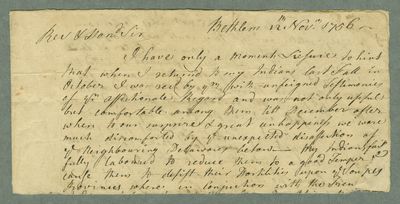 Revd & Hond Sir Bethlem Novr 1756
I have only a moments Leisure to hint
that when I returnd to my Indians last Fall in
October I was recd by ym with unfeigned Testimonies
of yr affectionate Regard and was not only usefull
but comfortable among them till December after
when to our surprise & great unhappiness we were
much discomforted by ye unexpected dissafection of
ye Neighbouring Delawares below— My Indians faith
fully laboured to reduce them to a good Temper &
cause them to desist their Hostilities upon ye Southern
Provinces where in conjunction with the